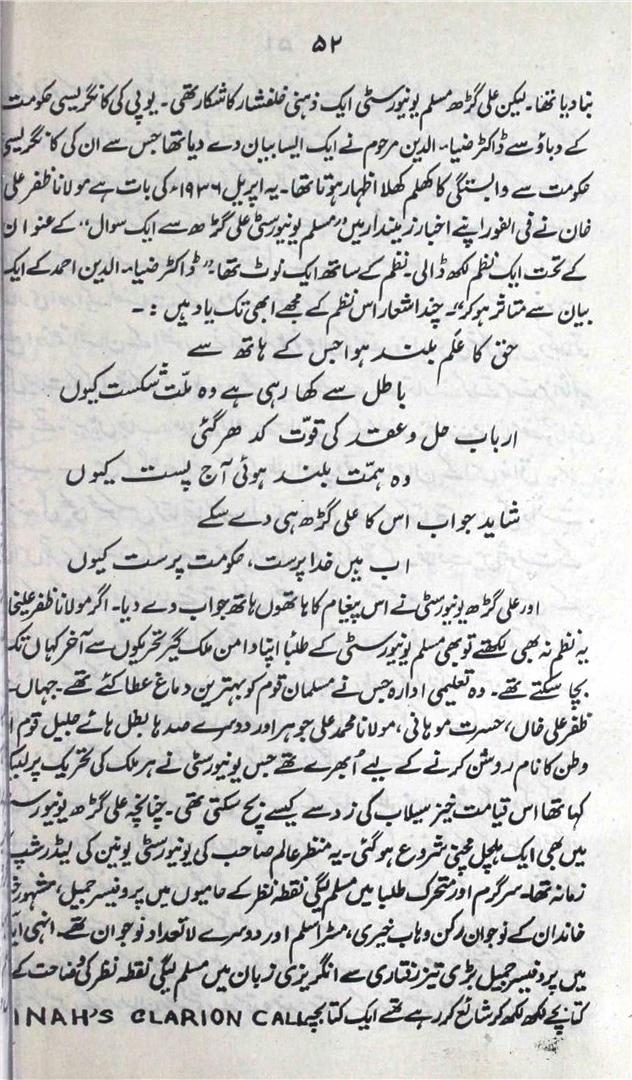 ۵۲
بنا دیا تھا۔ لیکن علی گڑھ مسلم یونیورسٹی ایک ذہنی خلفشار کا شکار تھی۔ یو پی کی کانگریسی حکومت
کے دباؤ سے ڈاکٹر ضیاء الدین مرحوم نے ایک ایسا بیان دے دیا تھا جس سے ان کی کانگریسی
حکومت سے وابستگی کا کھلم کھلا اظہار ہوتا تھا۔ یہ اپریل ۱۹۳۶ء کی بات ہے مولانا ظفر علی
خان نے فی الفور اپنے اخبار زمیندار میں "مسلم یونیورسٹی علی گڑھ سے ایک سوال" کے عنوان
کے تحت ایک نظم لکھ ڈالی۔ نظم کے ساتھ ایک نوٹ تھا۔ "ڈاکٹر ضیاء الدین احمد کے ایک
بیان سے متاثر ہو کر"۔ چند اشعار اس نظم کے مجھے ابھی تک یاد ہیں :۔
حق کا علَم بلند ہوا جس کے ہاتھ سے
باطل سے کھا رہی ہے وہ ملّت شکست کیوں
ارباب حل و عقد کی قوّت کدھر گئی
وہ ہمّت بلند ہوئی آج پست کیوں
شاید جواب اس کا علی گڑھ ہی دے سکے
اب ہیں خدا پرست، حکومت پرست کیوں
اور علی گڑھ یونیورسٹی نے اس پیغام کا ہاتھوں ہاتھ جواب دے دیا۔ اگر مولانا ظفر علیخا
یہ نظم نہ بھی لکھتے تو بھی مسلم یونیورسٹی کے طلبا اپنا دامن ملک گیر تحریکوں سے آخر کہاں تک
بچا سکتے تھے۔ وہ تعلیمی ادارہ جس نے مسلمان قوم کو بہترین دماغ عطا کئے تھے۔ جہاں
ظفر علی خاں، حسرت موہانی، مولانا محمد علی جوہر اور دوسرے صدہا بطل ہائے جلیل قوم ا
وطن کا نام روشن کرنے کے لیے اُبھرے تھے جس یونیورسٹی نے ہر ملک کی تحریک پر لبیک
کہا تھا اس قیامت خیز سیلاب کی زد سے کیسے بچ سکتی تھی۔ چنانچہ علی گڑھ یونیورسٹ
میں بھی ایک ہلچل مچنی شروع ہو گئی۔ یہ منظر عالم صاحب کی یونیورسٹی یونین کی لیڈر شپ
زمانہ تھا۔ سرگرم اور متحرک طلبا میں مسلم لیگی نقطہ نظر کے حامیوں میں پروفیسر جمیل، مشہور خ
خاندان کے نوجوان رکن وہاب خیری، مسٹر اسلم اور دوسرے لاتعداد نوجوان تھے۔ انہی ا
میں پروفیسر جمیل بڑی تیز رفتاری سے انگریزی زبان میں مسلم لیگی نقطہ نظر کی وضاحت کے
کتابچے لکھ لکھ کر شائع کر رہے تھے ایک کتابچہ INAH'S CLARION CALL